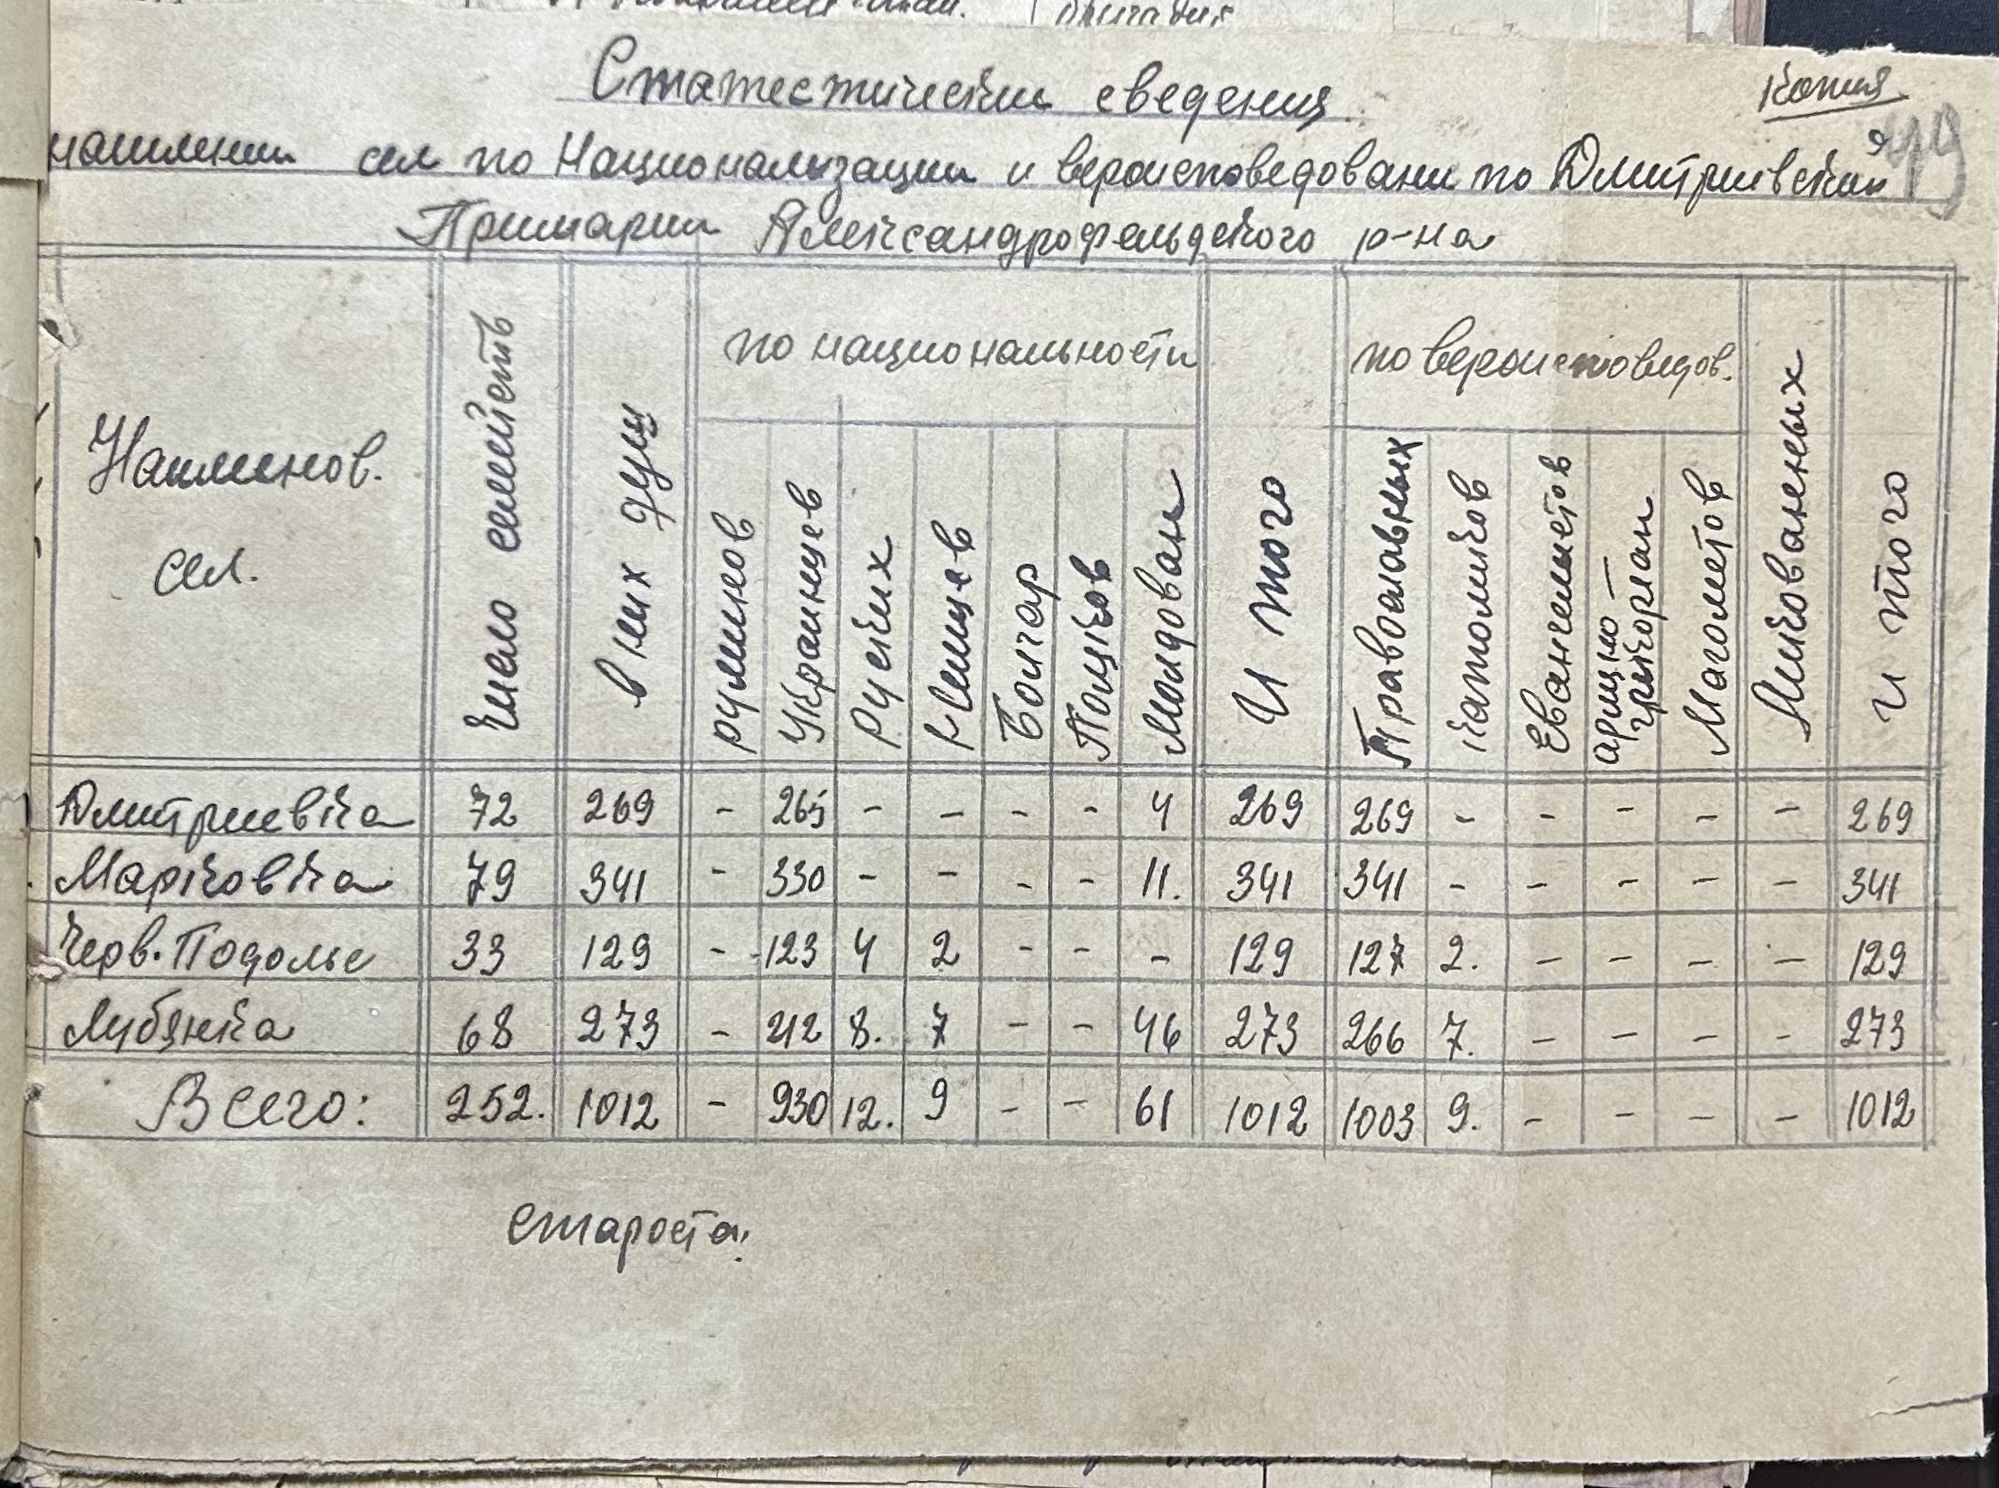 Копия
Статестически сведения
насилении сел по Национализации и вероисповедовани по Дмитриевской
Примарии Александрофельдского р-на
Наименов. сел. Число семейств в них душ по национальности Итого по вероисповедов. Миновоненных Итого
румынов Украинцев Руских Немцев Болгар Поляков Молдован Православных католиков Евангелистов армяно-григориан Магометов
Дмитриевка 72 269 - 265 - - - - 4 269 269 - - - - - 269
Марковка 79 341 - 330 - - - - 11. 341 341 - - - - - 341
Черв. Подолье 33 129 - 123 4 2 - - - 129 127 2. - - - - 129
Лубянка 68 273 - 212 8. 7 - - 46 273 266 7. - - - - 273
Всего: 252. 1012 - 930 12. 9 - - 61 1012 1003 9. - - - - 1012
Староста: